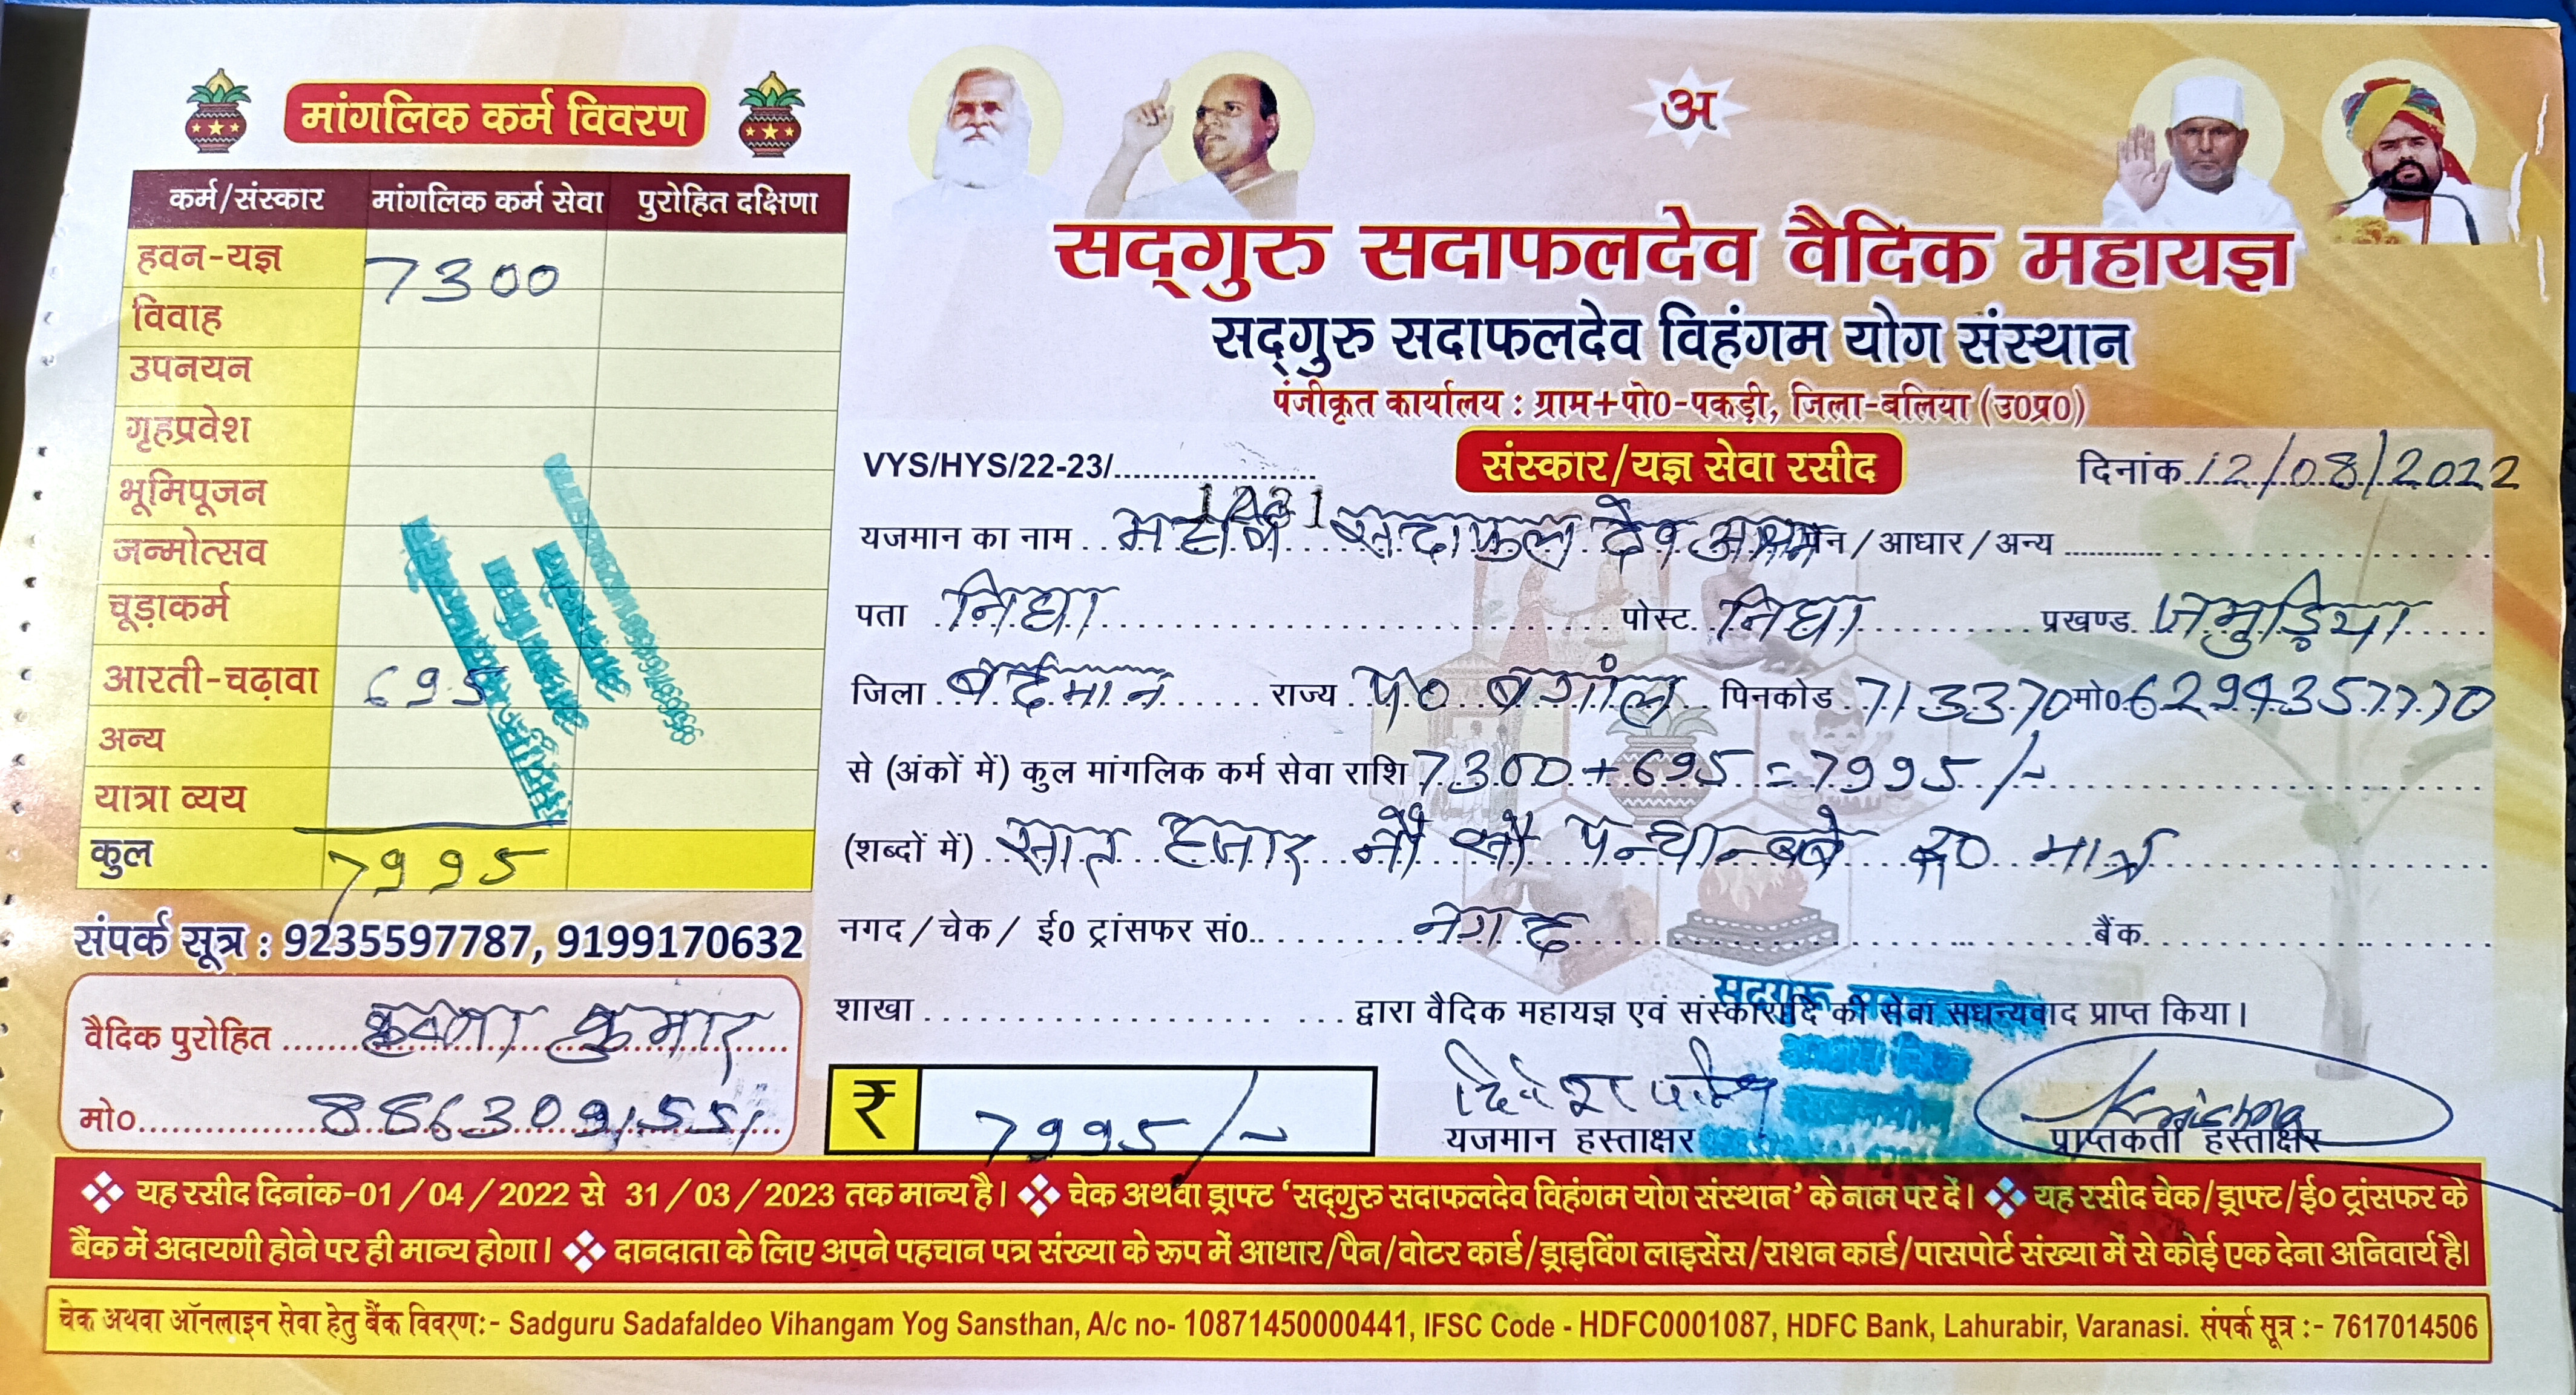 मांगलिक कर्म विवरण
कर्म/संस्कार मांगलिक कर्म सेवा पुरोहित दक्षिणा
हवन-यज्ञ 7300
विवाह
उपनयन
गृहप्रवेश
भूमिपूजन
जन्मोत्सव
चूड़ाकर्म
आरती-चढ़ावा 695
अन्य
यात्रा व्यय
कुल 7995
संपर्क सूत्र : 9235597787, 9199170632
वैदिक पुरोहित कुमार
मो० 8863091551
अ
सद्गुरु सदाफलदेव वैदिक महायज्ञ
सद्गुरु सदाफलदेव विहंगम योग संस्थान
पंजीकृत कार्यालय : ग्राम+पो0-पकड़ी, जिला-बलिया (उ0प्र0)
VYS/HYS/22-23/ संस्कार/यज्ञ सेवा रसीद दिनांक 12/08/2022
यजमान का नाम महर्षि सदाफल देव आश्रम पैन/आधार/अन्य
पता निघा पोस्ट निघा प्रखण्ड जमुड़िया
जिला बर्दमान राज्य प0 बगांल पिनकोड 713370 मो0 6294357770
से (अंकों में) कुल मांगलिक कर्म सेवा राशि 7300+695=7995/-
(शब्दों में) सात हजार नौ सौ पन्चानब्बे रू0 मात्र
नगद/चेक/ ई0 ट्रांसफर सं0 नगद बैंक
शाखा द्वारा वैदिक महायज्ञ एवं संस्कारादि की सेवा सधन्यवाद प्राप्त किया।
₹ 7995/-
यजमान हस्ताक्षर प्राप्तकर्ता हस्ताक्षर
❖ यह रसीद दिनांक-01/04/2022 से 31/03/2023 तक मान्य है। ❖ चेक अथवा ड्राफ्ट 'सद्गुरु सदाफलदेव विहंगम योग संस्थान' के नाम पर दें। ❖ यह रसीद चेक/ड्राफ्ट/ई0 ट्रांसफर के
बैंक में अदायगी होने पर ही मान्य होगा। ❖ दानदाता के लिए अपने पहचान पत्र संख्या के रूप में आधार/पैन/वोटर कार्ड/ड्राइविंग लाइसेंस/राशन कार्ड/पासपोर्ट संख्या में से कोई एक देना अनिवार्य है।
चेक अथवा ऑनलाइन सेवा हेतु बैंक विवरण:- Sadguru Sadafaldeo Vihangam Yog Sansthan, A/c no- 10871450000441, IFSC Code - HDFC0001087, HDFC Bank, Lahurabir, Varanasi. संपर्क सूत्र :- 7617014506